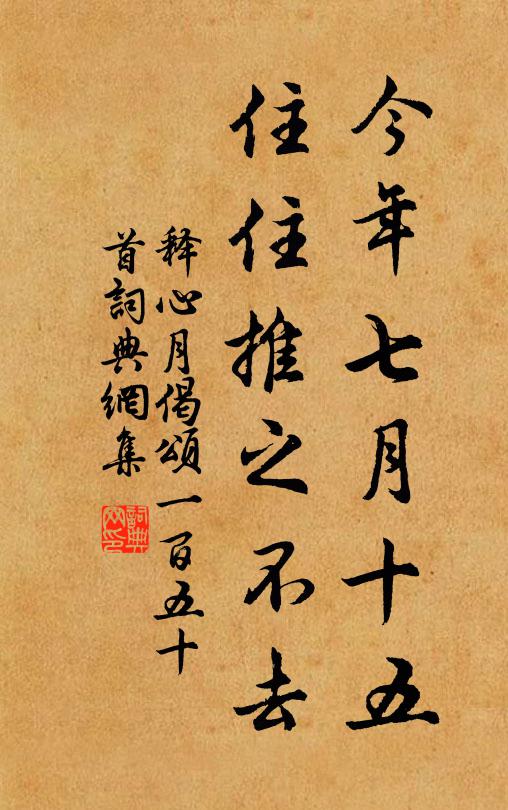 今年七月十五
住住推之不去
释心月偈頌一百五十
首詞典網集
詞典网印